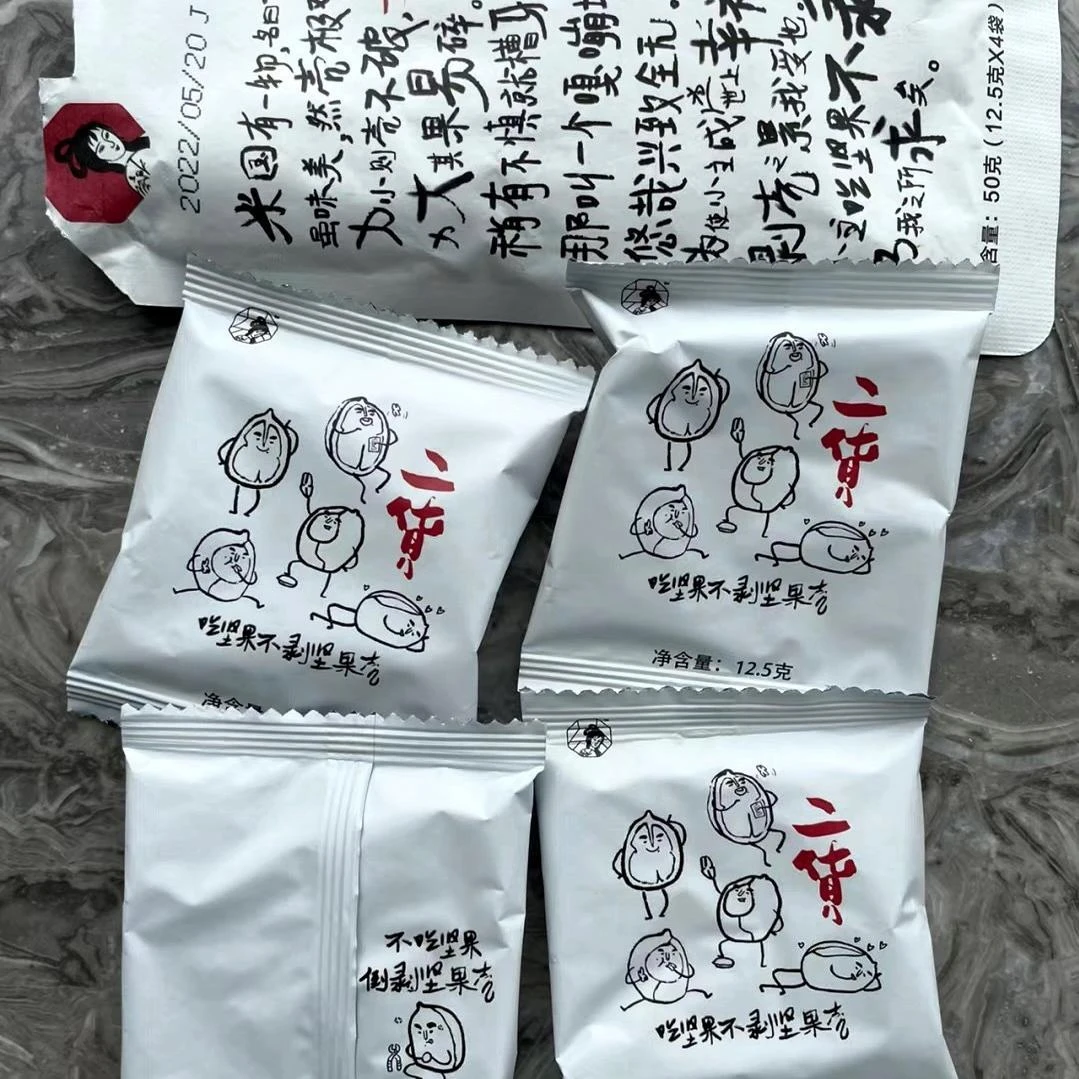 2022/05/20 J
米国有一物,名曰
虽味美,然壳极
力小则壳不破、
力大其果易碎。
稍有不慎就糟
那叫一个嘎嘣
悠哉兴致全无。
为使小主成为世上幸
剥壳之累我受也
这吃坚果不剥
乃我之所求矣。
含量:50克(12.5克X4袋)
二货
吃坚果不剥坚果壳
净含量
二货
吃坚果不剥坚果壳
净含量:12.5克
不吃坚果
倒剥坚果壳
二货
吃坚果不剥坚果壳